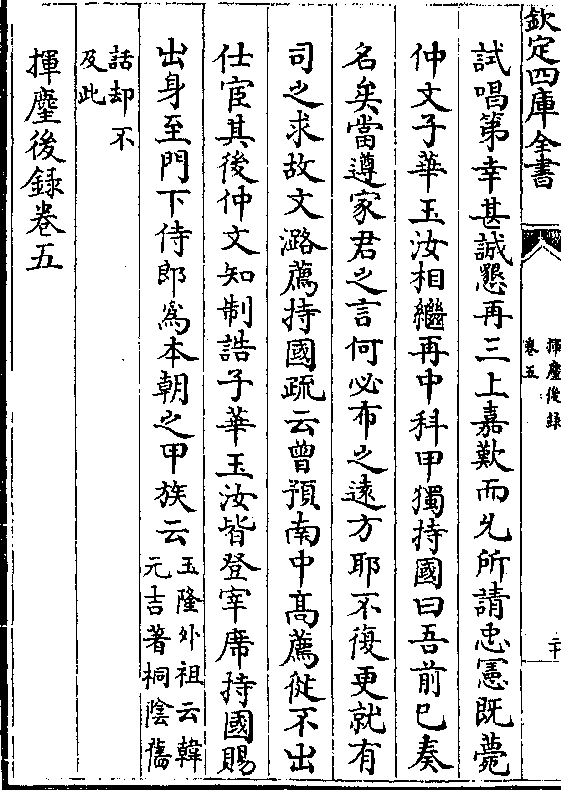 欽定四庫全書
揮麈後録
卷五
二十
試唱第幸甚誠懇再三上嘉歎而允所請忠憲既薨
仲文子華玉汝相繼再中科甲獨持國曰吾前已奏
名矣當遵家君之言何必布之遠方耶不復更就有
司之求故文潞薦持國疏云曾預南中髙薦從不出
仕宦其後仲文知制誥子華玉汝皆登宰席持國賜
出身至門下侍郎爲本朝之甲族云
玉隆外祖云韓
元吉著桐陰舊
話却不
及此
揮麈後録卷五